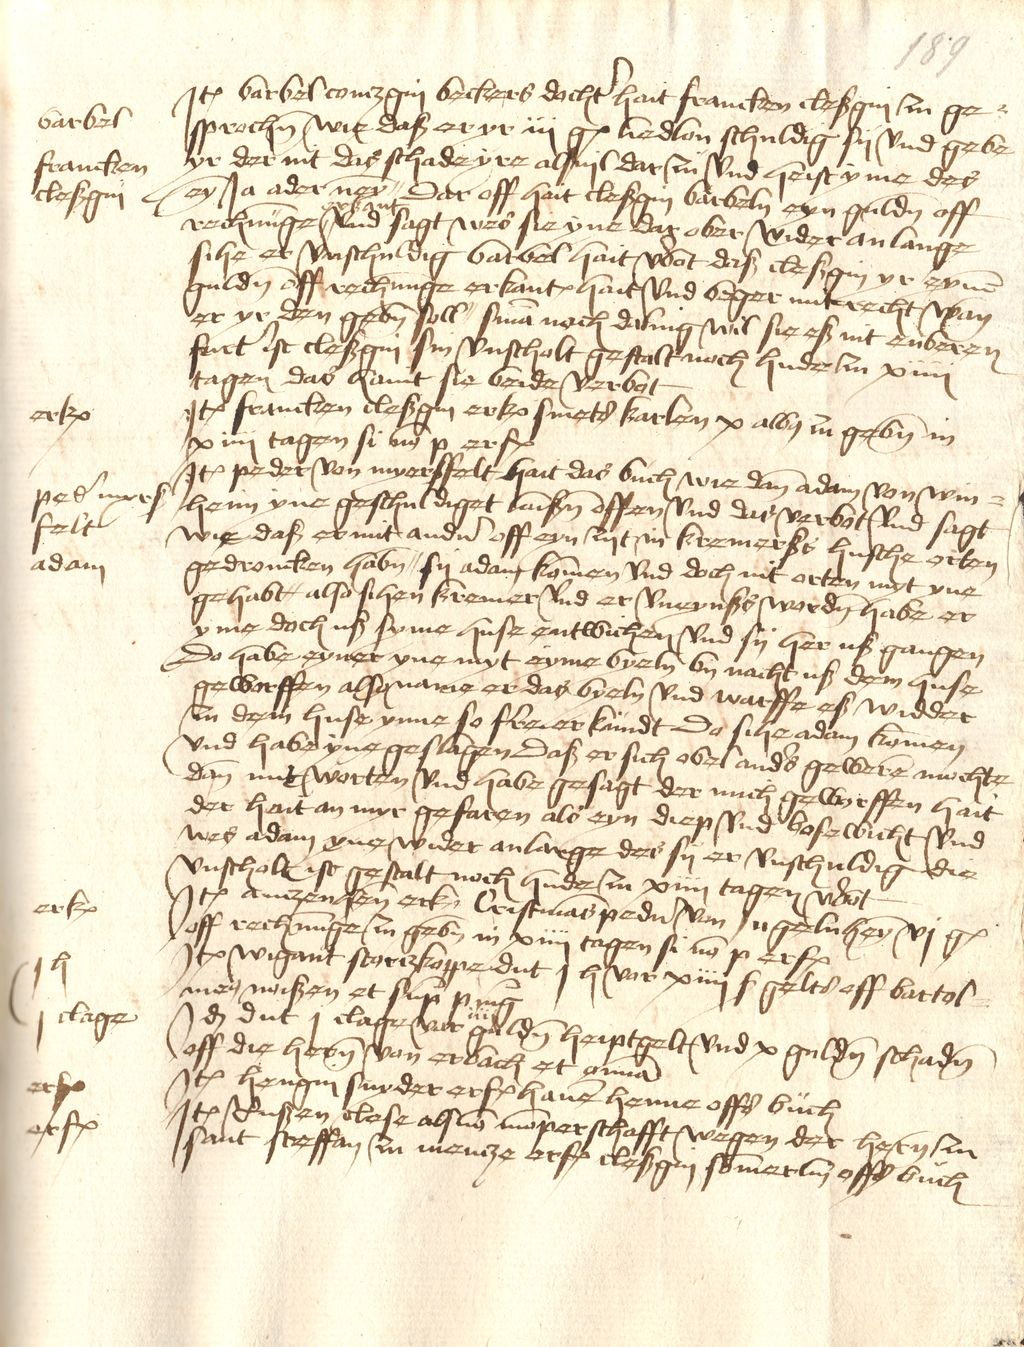 189
barbel
francken
cleßgin
Jt(em) barbel contzgin beckers docht(er) hait francken cleßgin zu ge-
sprochen wie daß er yr iii g(ulden) liedlon schuldig sij vnd gebe
yr der nit das schade yre als vil dar zu vnd heist yme des
ey(n) Ja ader ney(n) Dar off hait cleßgin barbeln eyn guld(e)n off
rechnu(n)ge erkant vnd sagt wes sie yne dar ober wider anlange
sihe er vnschuldig barbel hait v(er)bot daß cleßgin yr eyne(n)
guld(e)n off rechnu(n)ge erkant hait vnd beger mit recht wan
er yr den geb(e)n soll sin(t) noch da(n)nig wil sie eß nit enberen
furt(er) ist cleßgin sin vnscholt gestalt noch hude zu xiiii
tagen das hant sie beide verbot
erk(ant)
Jt(em) francken cleßgin erk(ant) smeds karlen x alb(us) zu geb(e)n in
xiiii tagen si no(n) p(fant) erf(olgt)
ped(er) myrß
felt
adam
Jt(em) peder von myerßfelt hait das buch wie dan adam von win-
heim yne geschuldiget laiß(e)n offen vnd das verbot vnd sagt
wie daß er mit and(er)n off eyn zijt in kremerßs husche orten
gedroncken hab(e)n sij adam kome(n) vnd doch nit orten myt yne
gehabt also sihen kremer vnd er vneynßs word(e)n habe er
yme doch uß syme huse entwichen vnd sij her uß gangen
Do habe eyner yne myt eyme byeln by nacht uß dem huse
geworffen also name er das byeln vnd warffe eß widder
zu dem huse ynne so f(...)er kundt Do sihe adam kome(n)
vnd habe yne geslagen Daß er sich obel and(er)s gewere(n) mochte
dan mit worten vnd habe gesagt der mich geworffen hait
der hait an myr gefaren als eyn diep vnd bosewicht vnd
wes adam yne wider anlange des sij er vnschuldig die
vnscholt ist gestalt noch hude zu xiiii tagen v(er)bot
erk(ant)
Jt(em) antzenhen erk(ant) Cristmas ped(er)n von Jngelnhey(m) vj g(ulden)
off rechnu(n)ge zu geb(e)n in xiiii tagen si no(n) p(fant) erf(olgt)
j h
Jt(em) wigant storzkoppe dut j h vor xiiii ß gelts off bartol-
mes noißen et sup(er) pi(g)n(or)a
j clage
Jd(em) dut j clage vor iiii guld(e)n heiptgelt vnd x guld(e)n schad(e)n
off die her(e)n von erbach et o(mn)ia
erf(olgt)
Jt(em) hengin snyder erf(olgt) hane(n) henne offs buch
erf(olgt)
Jt(em) Rußen clese als vo(n) mo(m)perschafft wegen der her(e)n zu
sant steffan zu mentze erf(olgt) cleßgin so(m)merlin offs buch